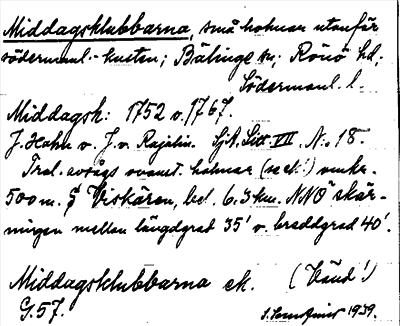 Middagsklubbarna, små holmar utanför
södermanl.-kusten; Bälinge sn; Rönö hd;
Södermanl. l.
Middagsk: 1752 v. 1767.
J. Hahn v. J. v. Rajalin. Sjk. Litt. VII. N:o 18.
Trol. avsågs ovannt. holmar (se ek!) omkr.
500 m. S Viskären, bel. 6.3 km. NNO skär-
ningen mellan längdgrad 35' v. breddgrad 40'.
Middagsklubbarna ek. (Vänd!)
G. 57. 1939.